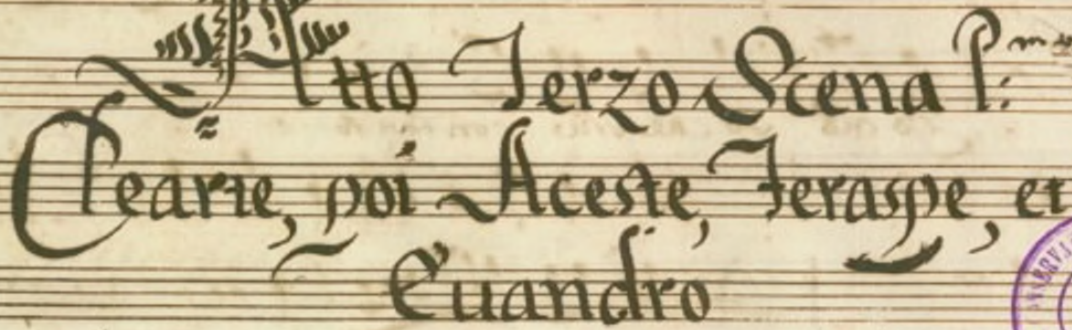 Atto Terzo Scena P:ma
Clearte, poi Aceste, Feraspe, et
Euandro